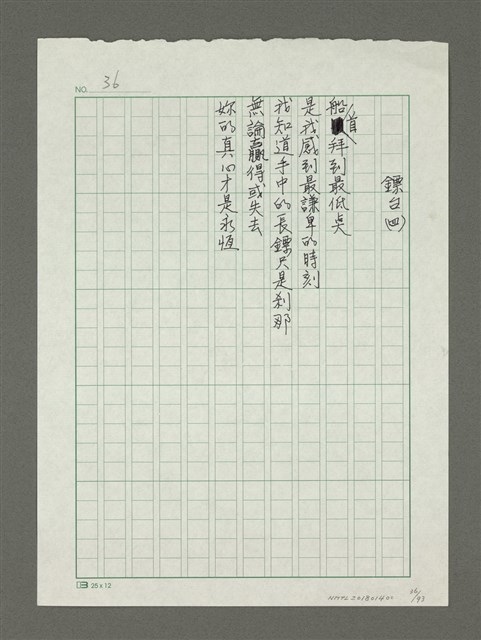 NO. 36
鏢台(四)
船首拜到最低點
是我感到最謙卑的時刻
我知道手中的長鏢只是剎那
無論贏得或失去
妳的真心才是永恆
25 x 12
36/93